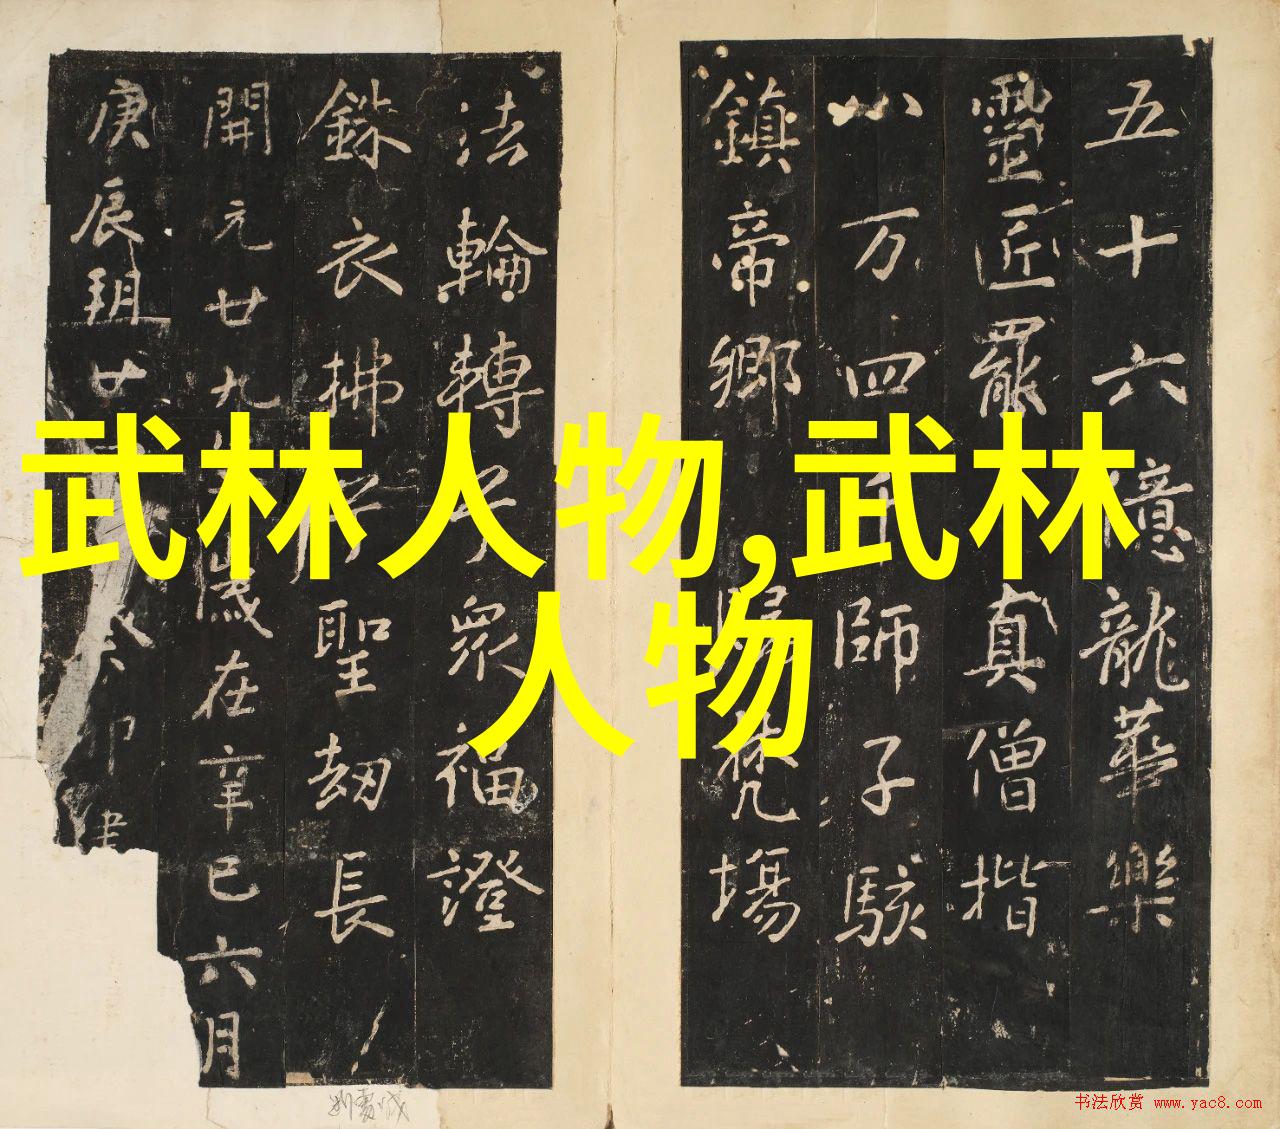 武林人物,武林
人物
五十六億龍華樂
靈匠罷真僧揩
八万四千師子駭
鎮帝鄉歸梵場
法輪轉兮眾福證
銖衣拂兮聖劫長
開元廿九年歲在辛巳六月
庚辰朔廿癸卯建
书法欣赏 www.yac8.com